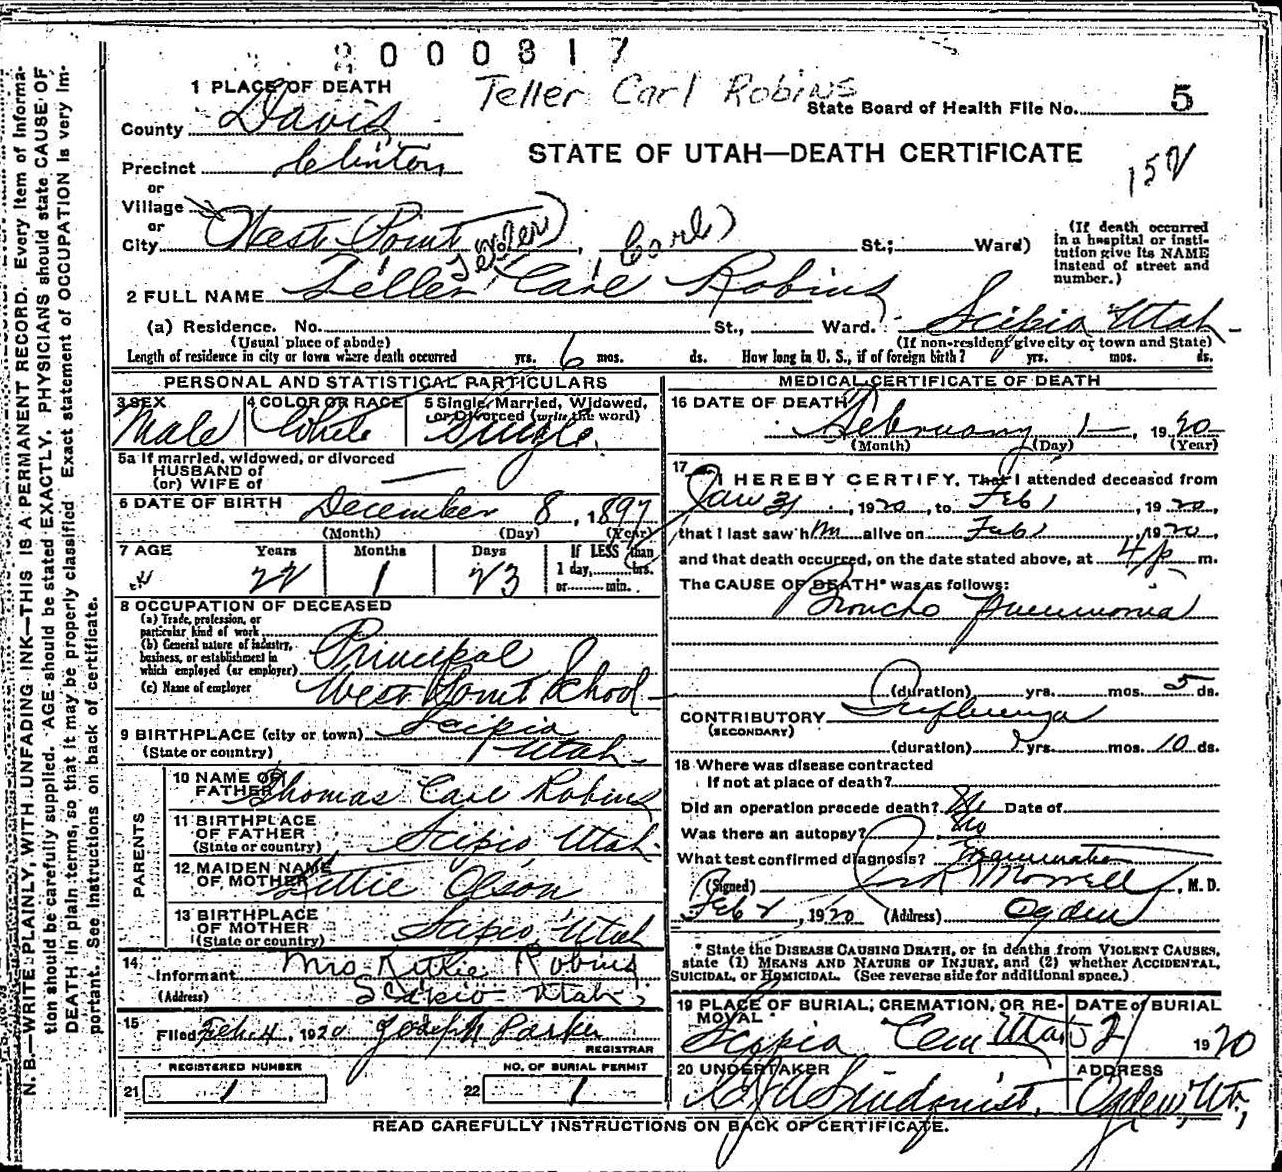 2000817
Teller Carl Robins
1 PLACE OF DEATH
State Board of Health File No. 5
County Davis
STATE OF UTAH—DEATH CERTIFICATE
152
Precinct Clinton
or
Village
or
City West Point St.; Ward)
(If death occurred in a hospital or insti-
tution give its NAME instead of street and number.)
2 FULL NAME Teller Carl Robins
(a) Residence. No. St., Ward. Scipio Utah
(Usual place of abode) (If non-resident give city or town and State)
Length of residence in city or town where death occurred yrs. 6 mos. ds. How long in U. S., if of foreign birth? yrs. mos. ds.
PERSONAL AND STATISTICAL PARTICULARS
3 SEX Male
4 COLOR OR RACE White
5 Single, Married, Widowed, or Divorced (write the word) Single
5a If married, widowed, or divorced
HUSBAND of
(or) WIFE of
6 DATE OF BIRTH December 8, 1897
(Month) (Day) (Year)
7 AGE Years Months Days If LESS than
22 1 23 1 day, hrs.
or min.
8 OCCUPATION OF DECEASED
(a) Trade, profession, or
particular kind of work
(b) General nature of industry,
business, or establishment in
which employed (or employer) Principal
(c) Name of employer West Point School
9 BIRTHPLACE (city or town) Scipio
(State or country) Utah
PARENTS
10 NAME OF FATHER Thomas Carl Robins
11 BIRTHPLACE OF FATHER Scipio Utah
(State or country)
12 MAIDEN NAME OF MOTHER Kittie Olson
13 BIRTHPLACE OF MOTHER Scipio Utah
(State or country)
14 Informant Mrs Kittie Robins
(Address) Scipio Utah
15 Filed Feb. 4, 1920 Joseph Parker
REGISTRAR
REGISTERED NUMBER NO. OF BURIAL PERMIT
21 1 22 1
MEDICAL CERTIFICATE OF DEATH
16 DATE OF DEATH February 1, 1920
(Month) (Day) (Year)
17 I HEREBY CERTIFY, That I attended deceased from
Jan 31, 1920, to Feb 1, 1920,
that I last saw him alive on Feb 1, 1920
and that death occurred, on the date stated above, at 4 p m.
The CAUSE OF DEATH* was as follows:
Broncho Pneumonia
(duration) yrs. mos. 5 ds.
CONTRIBUTORY Influenza
(SECONDARY)
(duration) yrs. mos. 10 ds.
18 Where was disease contracted
If not at place of death?
Did an operation precede death? No Date of
Was there an autopsy? No
What test confirmed diagnosis? Examination
(Signed) Morrell, M. D.
Feb 2, 1920 (Address) Ogden
*State the DISEASE CAUSING DEATH, or in deaths from VIOLENT CAUSES,
state (1) MEANS AND NATURE OF INJURY, and (2) whether ACCIDENTAL,
SUICIDAL, or HOMICIDAL. (See reverse side for additional space.)
19 PLACE OF BURIAL, CREMATION, OR RE-
MOVAL Scipio Cem Utah
DATE of BURIAL
1920
20 UNDERTAKER Lindquist
ADDRESS Ogden, Ut,
READ CAREFULLY INSTRUCTIONS ON BACK OF CERTIFICATE.
N. B.—WRITE PLAINLY, WITH UNFADING INK—THIS IS A PERMANENT RECORD. Every item of informa-
tion should be carefully supplied. AGE should be stated EXACTLY. PHYSICIANS should state CAUSE OF
DEATH in plain terms, so that it may be properly classified. Exact statement of OCCUPATION is very im-
portant. See instructions on back of certificate.